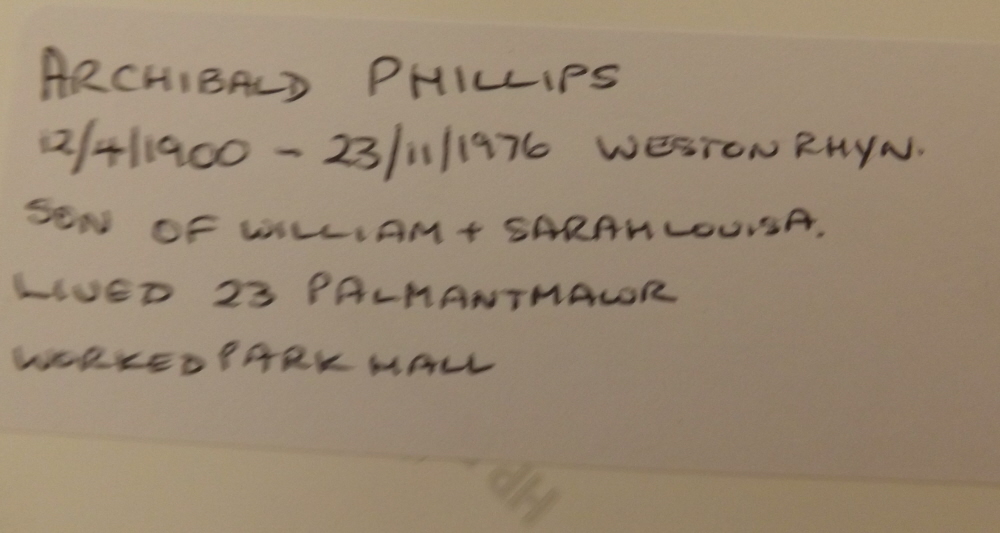 ARCHIBALD PHILLIPS
12/4/1900 - 23/11/1976 WESTON RHYN.
SON OF WILLIAM + SARAH LOUISA.
LIVED 23 PALMANTMAWR
WORKED PARK HALL
HP